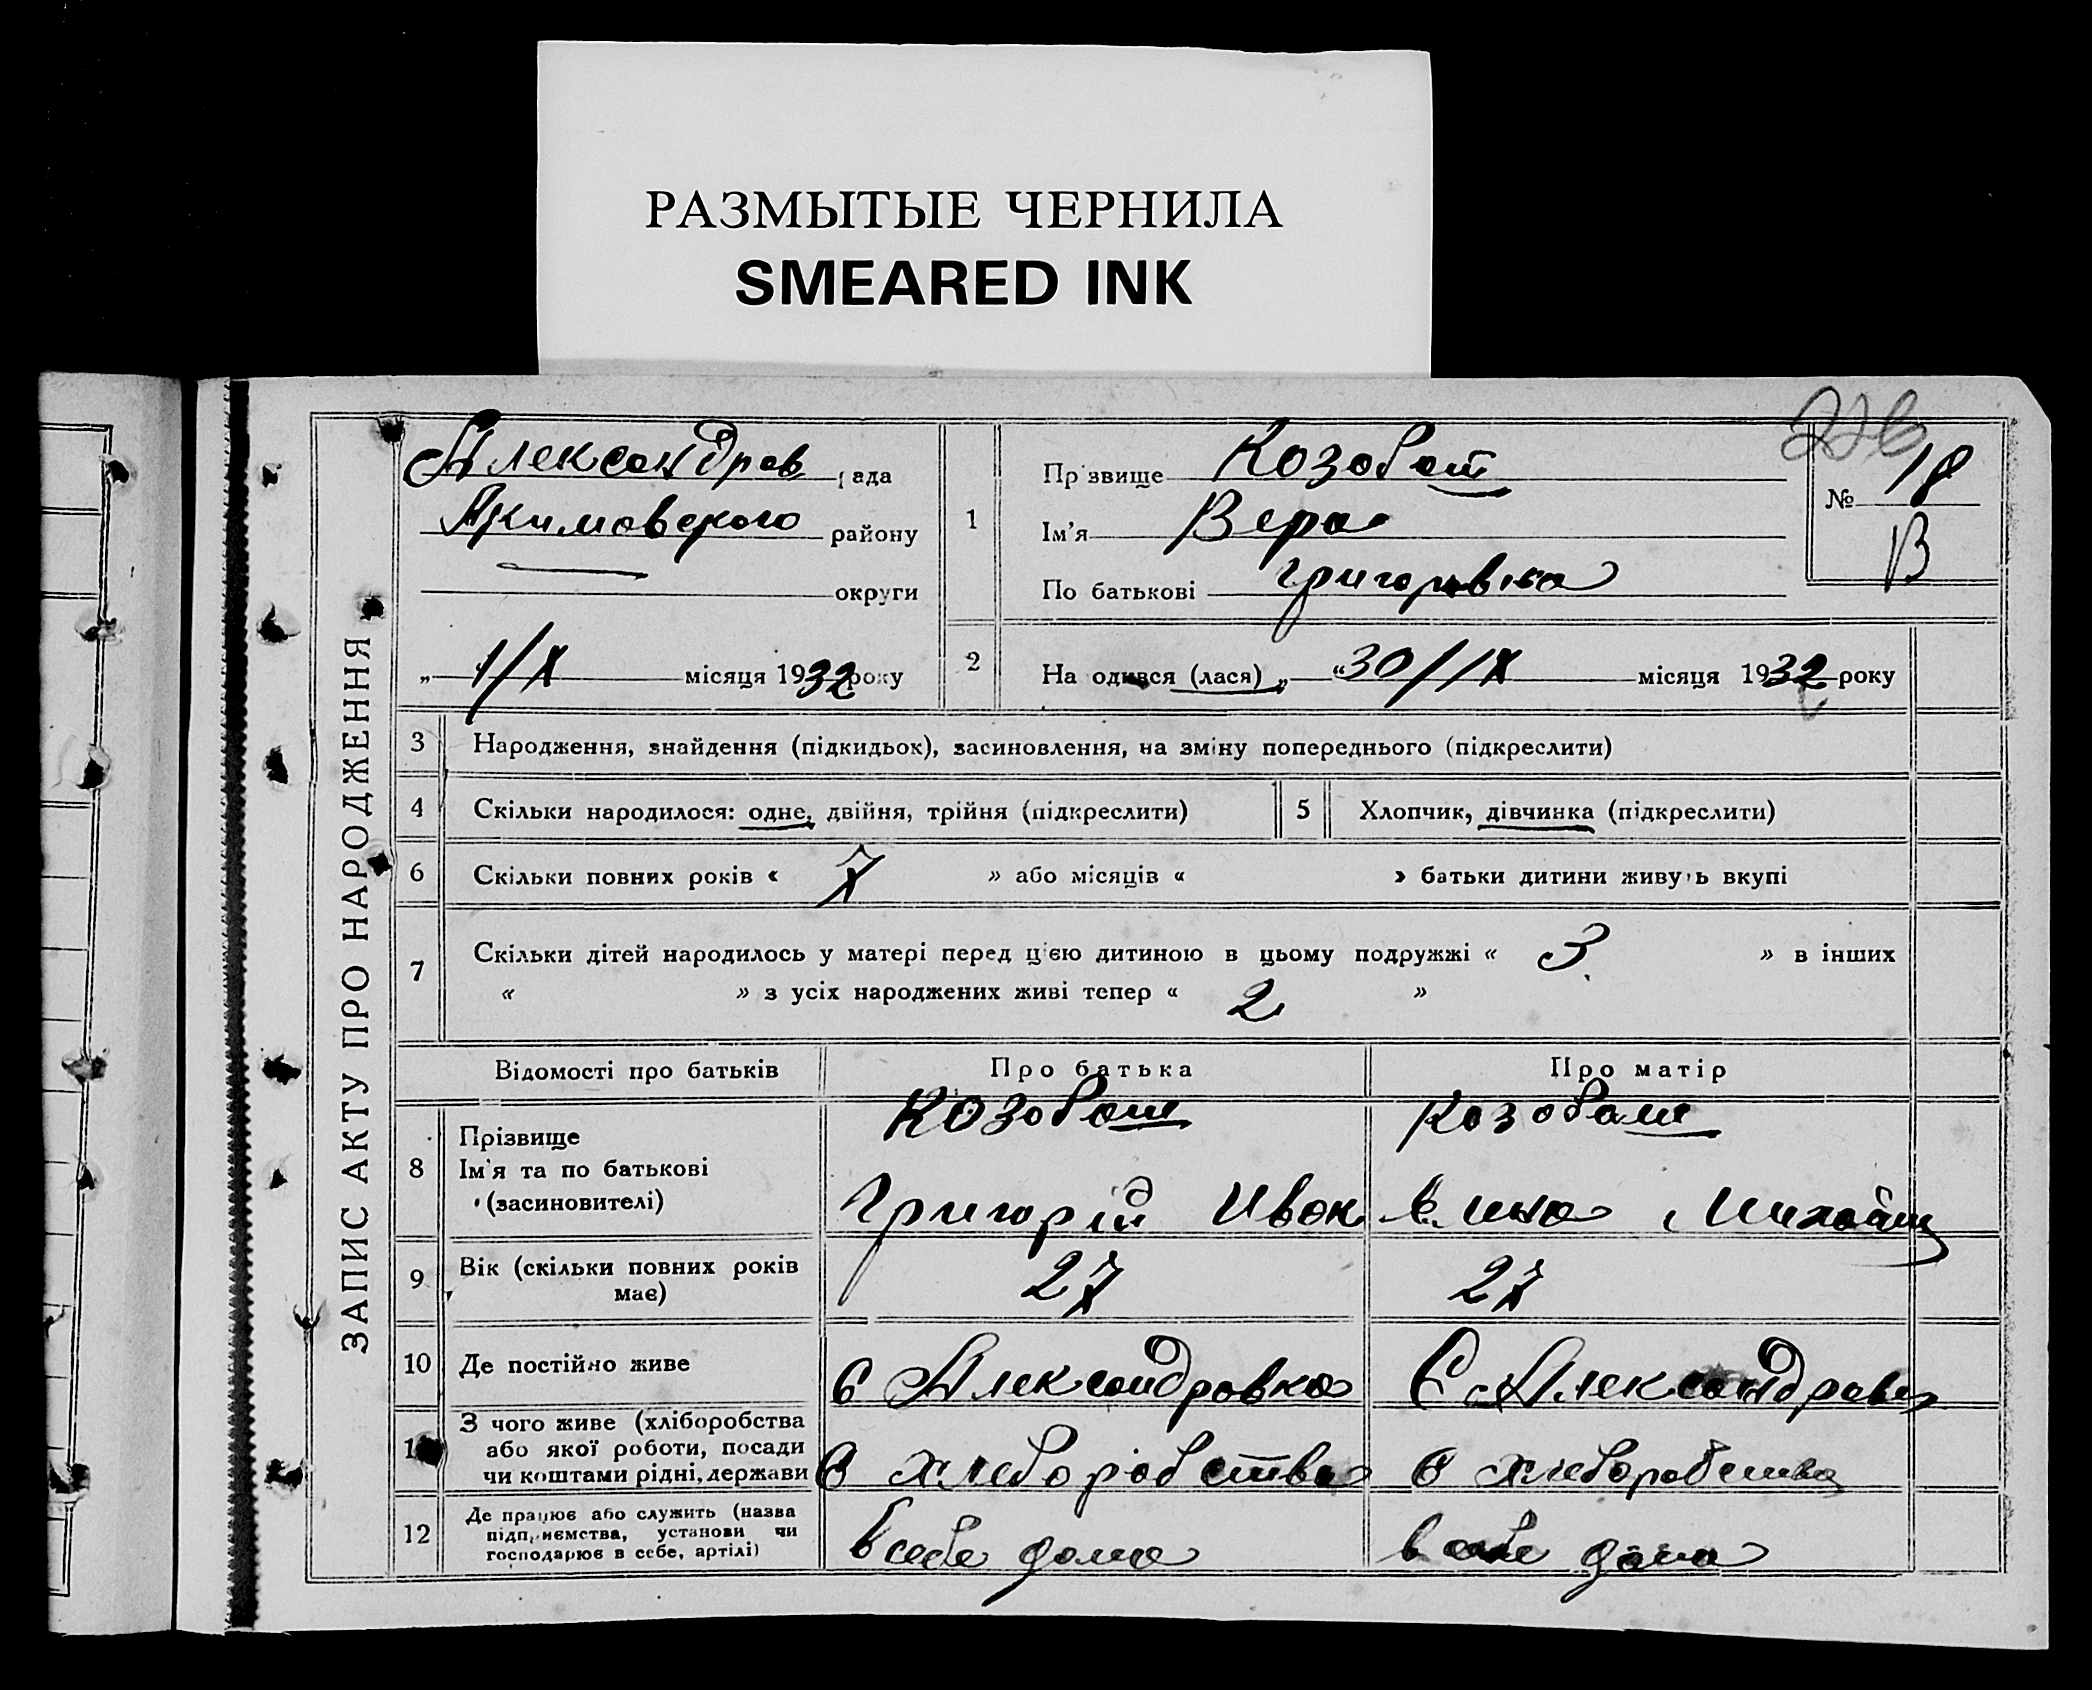 РАЗМЫТЫЕ ЧЕРНИЛА
SMEARED INK
226
Александров рада
Якимовского району
округи
„ 1/X місяця 1932 року
1
Прізвище Козобот
Ім'я Вера
По батькові Григоровна
№ 18
В
2
Народився (лася) „ “30/IX місяця 1932 року
ЗАПИС АКТУ ПРО НАРОДЖЕННЯ
3 Народження, знайдення (підкидьок), засиновлення, на зміну попереднього (підкреслити)
4 Скільки народилося: одне, двійня, трійня (підкреслити) 5 Хлопчик, дівчинка (підкреслити)
6 Скільки повних років « 7 » або місяців « » батьки дитини живуть вкупі
7 Скільки дітей народилось у матері перед цією дитиною в цьому подружжі « 3 » в інших
« » з усіх народжених живі тепер « 2 »
Відомості про батьків Про батька Про матір
8 Прізвище
Ім'я та по батькові
(засиновителі)
Козобот Козобот
Григорій Иван
9 Вік (скільки повних років
має)
27 27
10 Де постійно живе
С Александровка С Александровк
11 З чого живе (хліборобства
або якої роботи, посади
чи коштами рідні, держави
С хлеборобства С хлеборобства
12 Де працює або служить (назва
підприємства, установи чи
господарює в себе, артілі)
в себе дома в себе дома